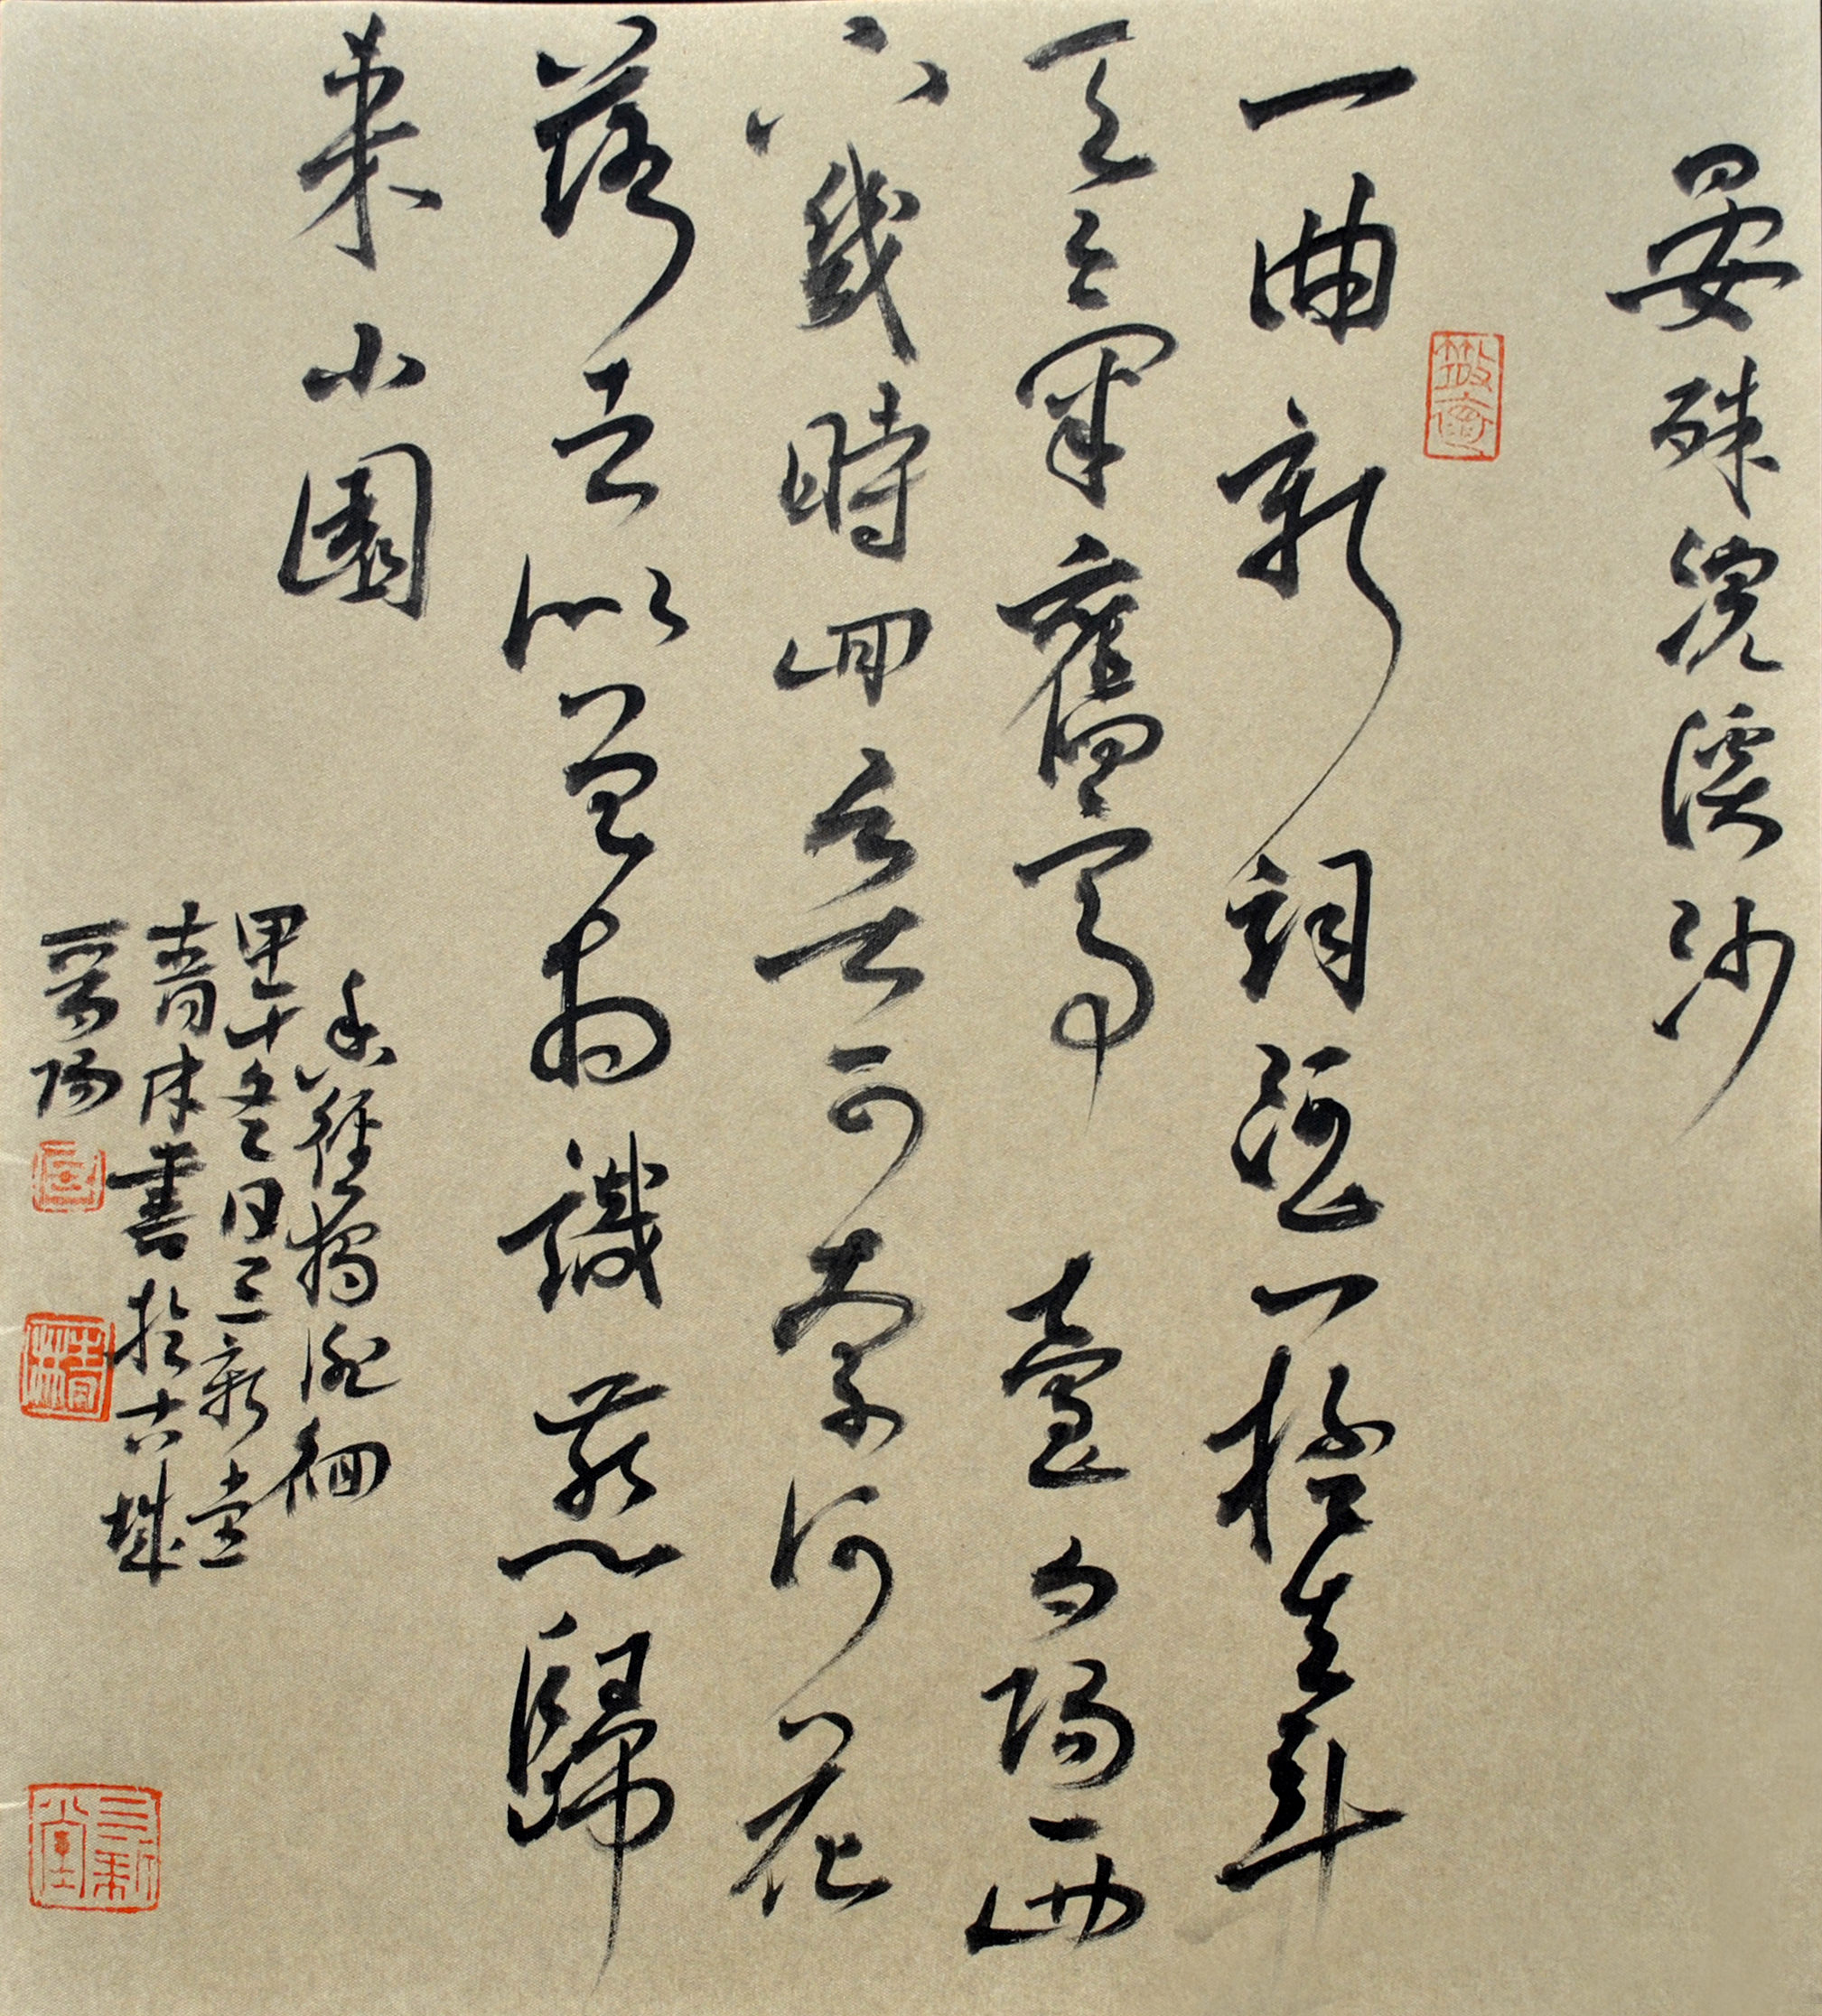 晏殊浣溪沙
一曲新詞酒一桮去年
天氣舊亭臺夕陽西
下幾時回無可奈何花
落去似曾相識燕歸
來小園
香徑獨徘徊
甲午冬日三新堂
青林書於古城
晉陽
青林
三新堂